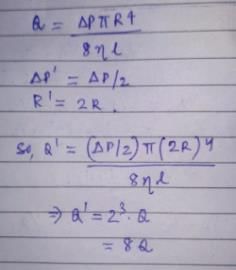 Q = ΔPπR4 / 8ηl
ΔP' = ΔP/2
R' = 2R.
So, Q' = (ΔP/2)π(2R)4 / 8ηl
⇒ Q' = 2³·Q
= 8Q